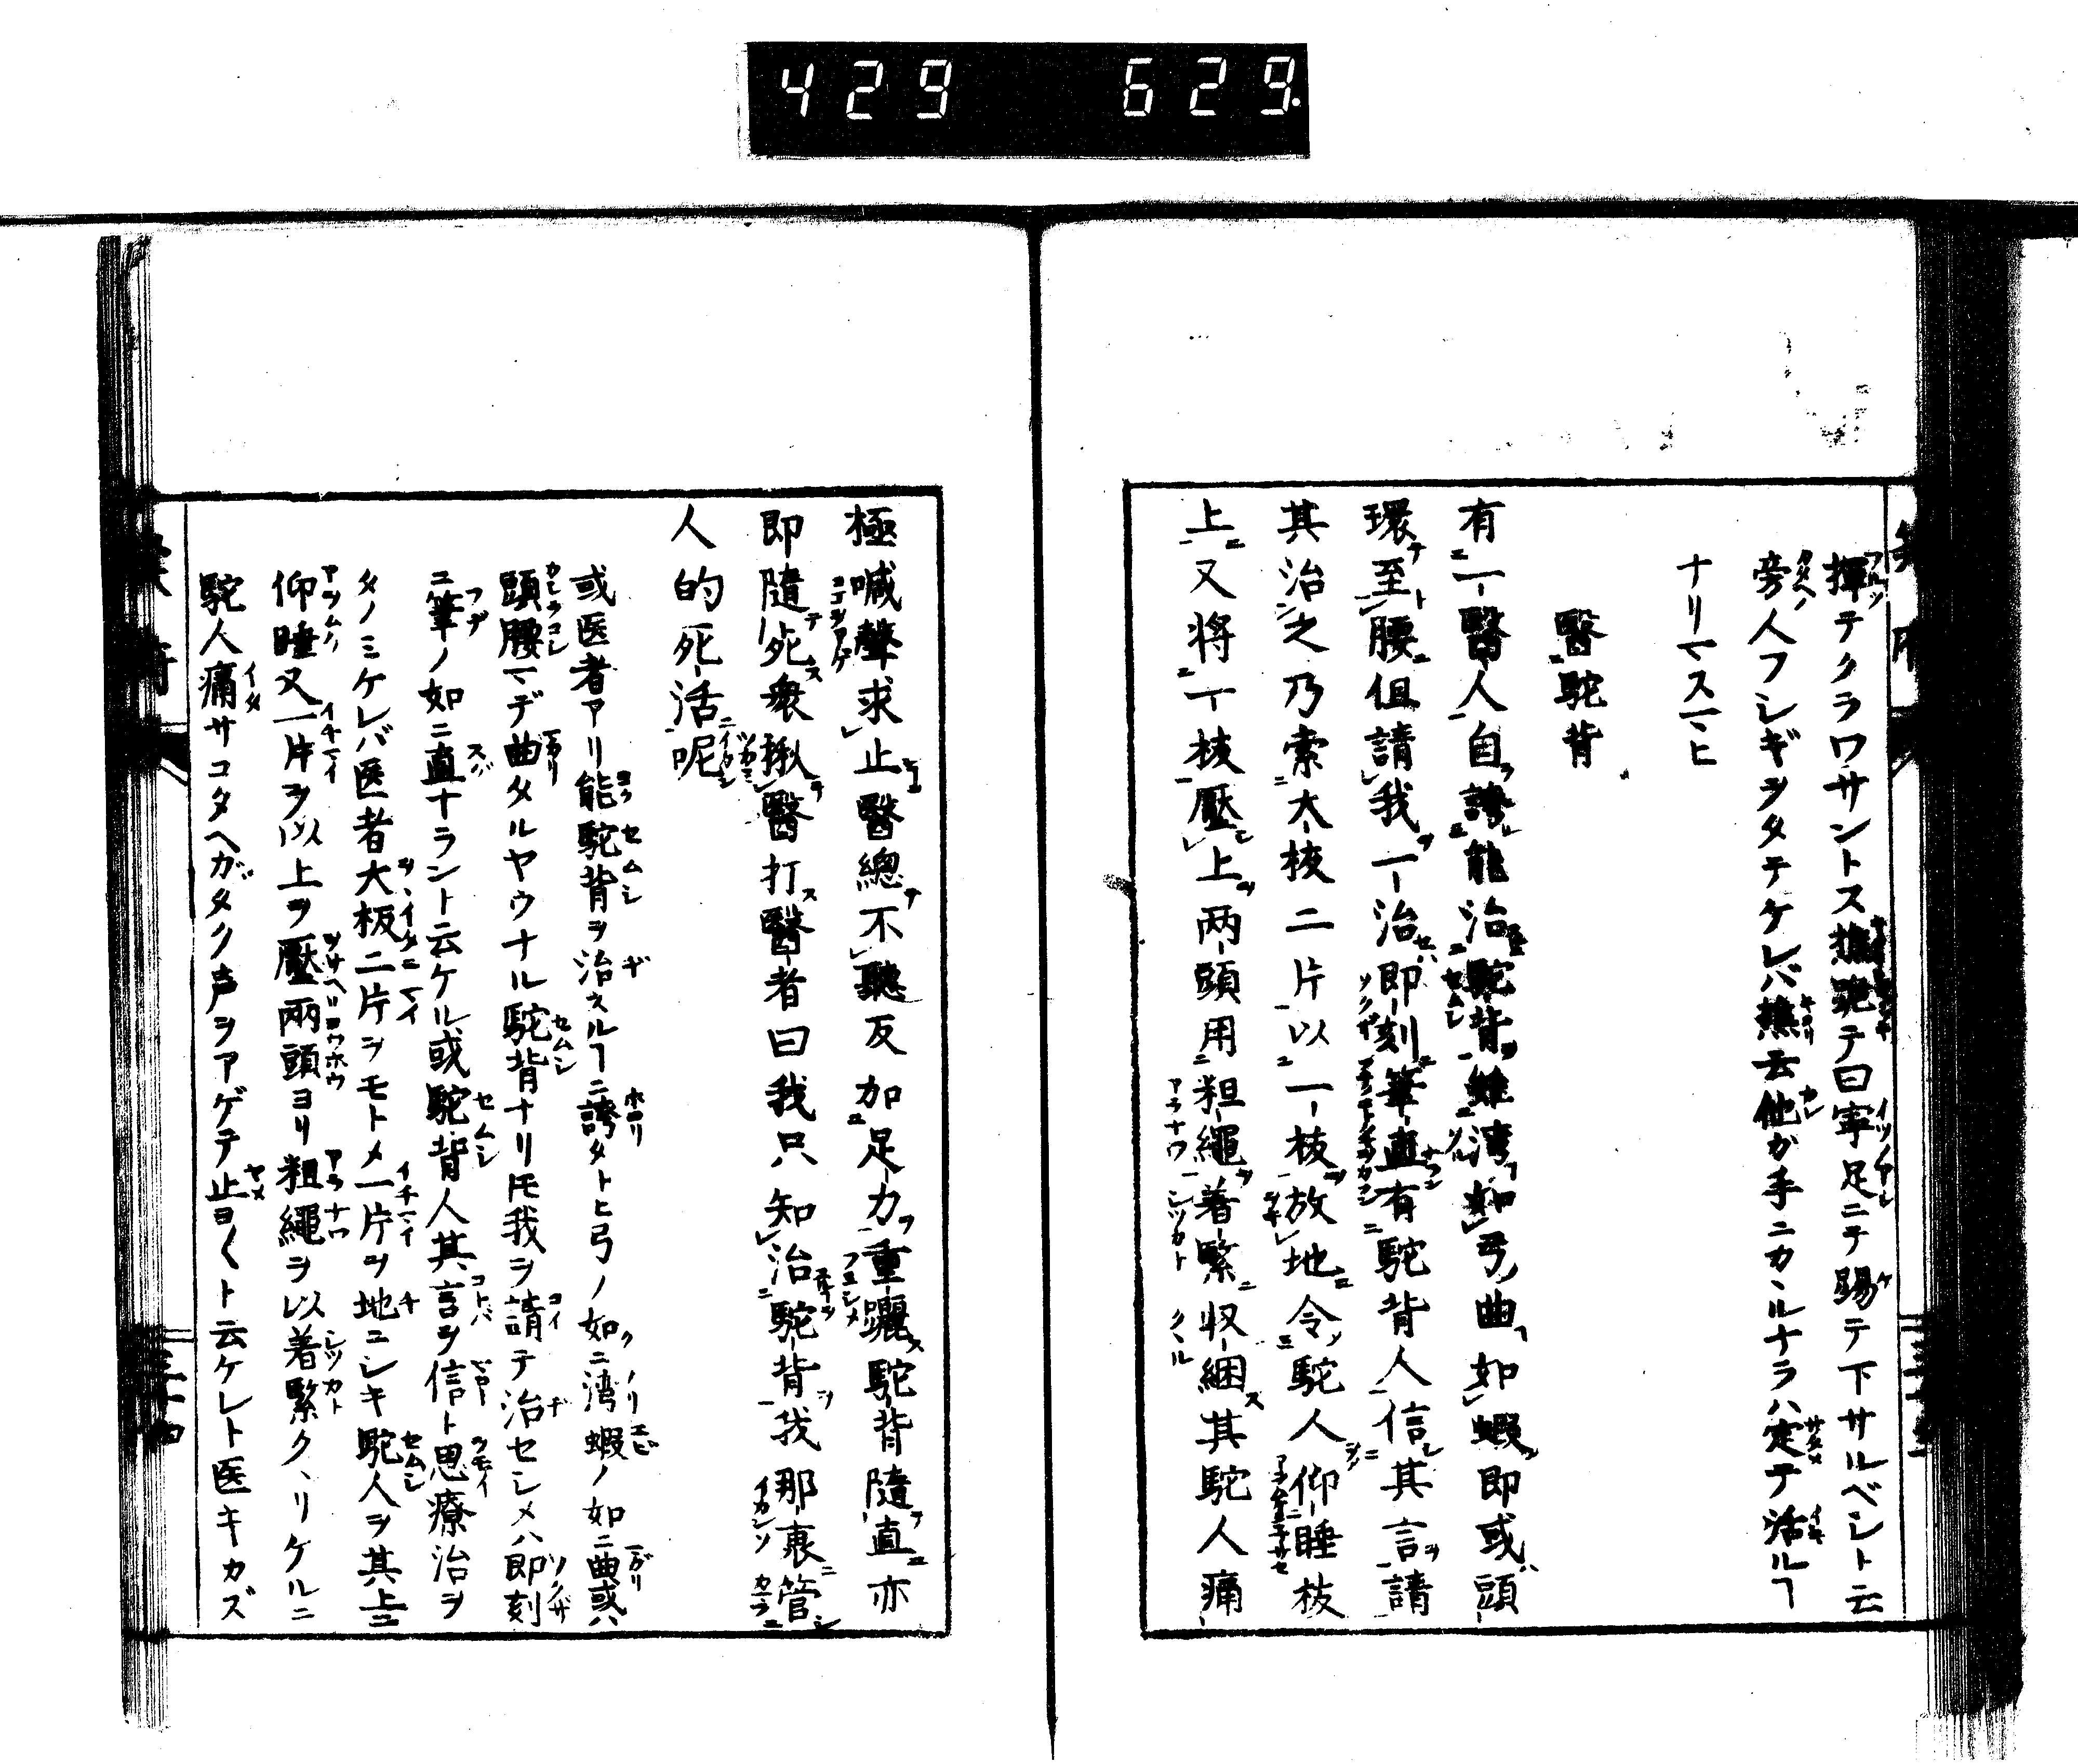 429 629.
揮テクラワサントス樵跪テ曰寧足ニテ踢テ下サルベシト云
旁人フシギヲタテケレバ樵云他ガ手ニカヽルナラハ定テ活ルヿ
ナリマスマヒ
醫駝背
有一醫人自誇能治駝背雖湾如弓曲如蝦即或頭
環至腰但請我一治即刻筆直有駝背人信其言請
其治之乃索大板二片以一板放地令駝人仰睡板
上又将一板壓上两頭用粗繩着緊収綑其駝人痛
極喊聲求止醫總不聽反加足力重躧駝背隨直亦
即隨死衆揪醫打醫者曰我只知治駝背我那裏管
人的死活呢
或医者アリ能駝背ヲ治スルヿニ誇タトヒ弓ノ如ニ湾蝦ノ如ニ曲或ハ
頭腰マデ曲タルヤウナル駝背ナリ𪜈我ヲ請テ治セシメハ即刻
ニ筆ノ如ニ直ナラント云ケル或駝背人其言ヲ信ト思療治ヲ
タノミケレバ医者大板二片ヲモトメ一片ヲ地ニシキ駝人ヲ其上ニ
仰睡又一片ヲ以上ヲ壓兩頭ヨリ粗繩ヲ以着緊クヽリケルニ
駝人痛サコタヘガタク声ヲアゲテ止ヨ〱ト云ケレト医キカズ